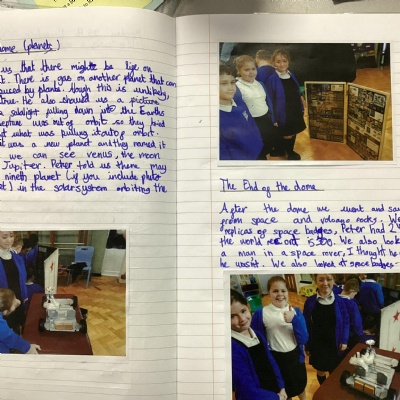 ome (planets)
us that there might be life on
t. There is gas on another planet that can
aused by plants. though this is unlikely,
true. He also showed us a picture
a satalight falling down into the Earths
Neptune was out of orbit so they tried
out what was pulling it out of orbit.
at was a new planet and they named it
we can see venus, the moon
Jupiter. Peter told us there may
ninth planet (if you include pluto
et) in the solar system orbiting the
The End of the dome
After the dome we went and saw
from space and volcano rocks. We
replicas of space badges, Peter had 2
the world record is 500. We also look
a man in a space rover, I thought he
he wasnt. We also looked at space badges